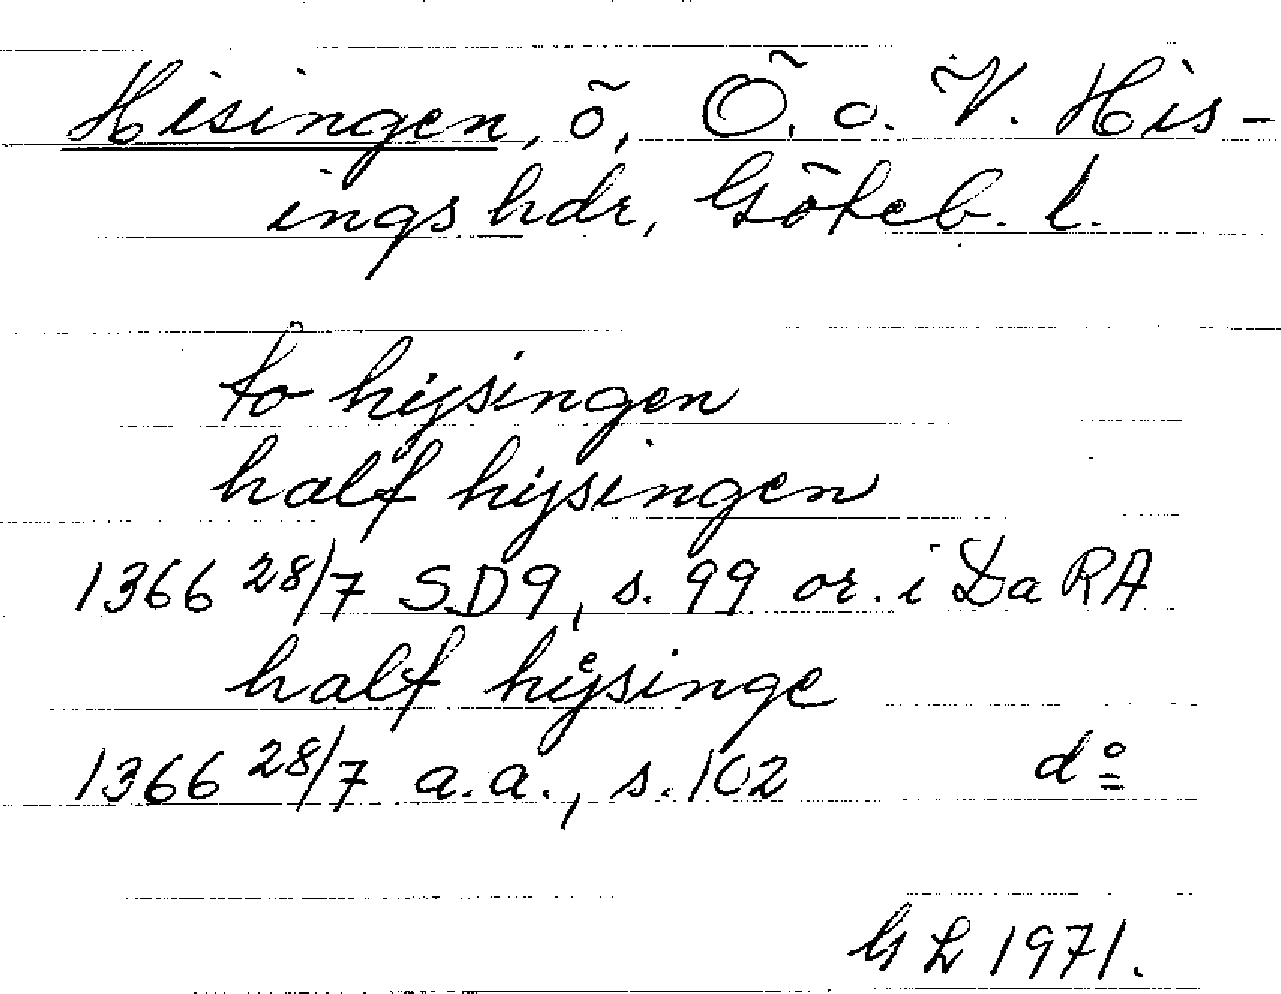 Hisingen, ö, Ö. o. V. His-
ings hdr, Göteb. l.
to hijsingen
half hijsingen
1366 28/7 SD9, s. 99 or. i Da RA
half hysinge
1366 28/7 a.a., s. 102 do
GL 1971.